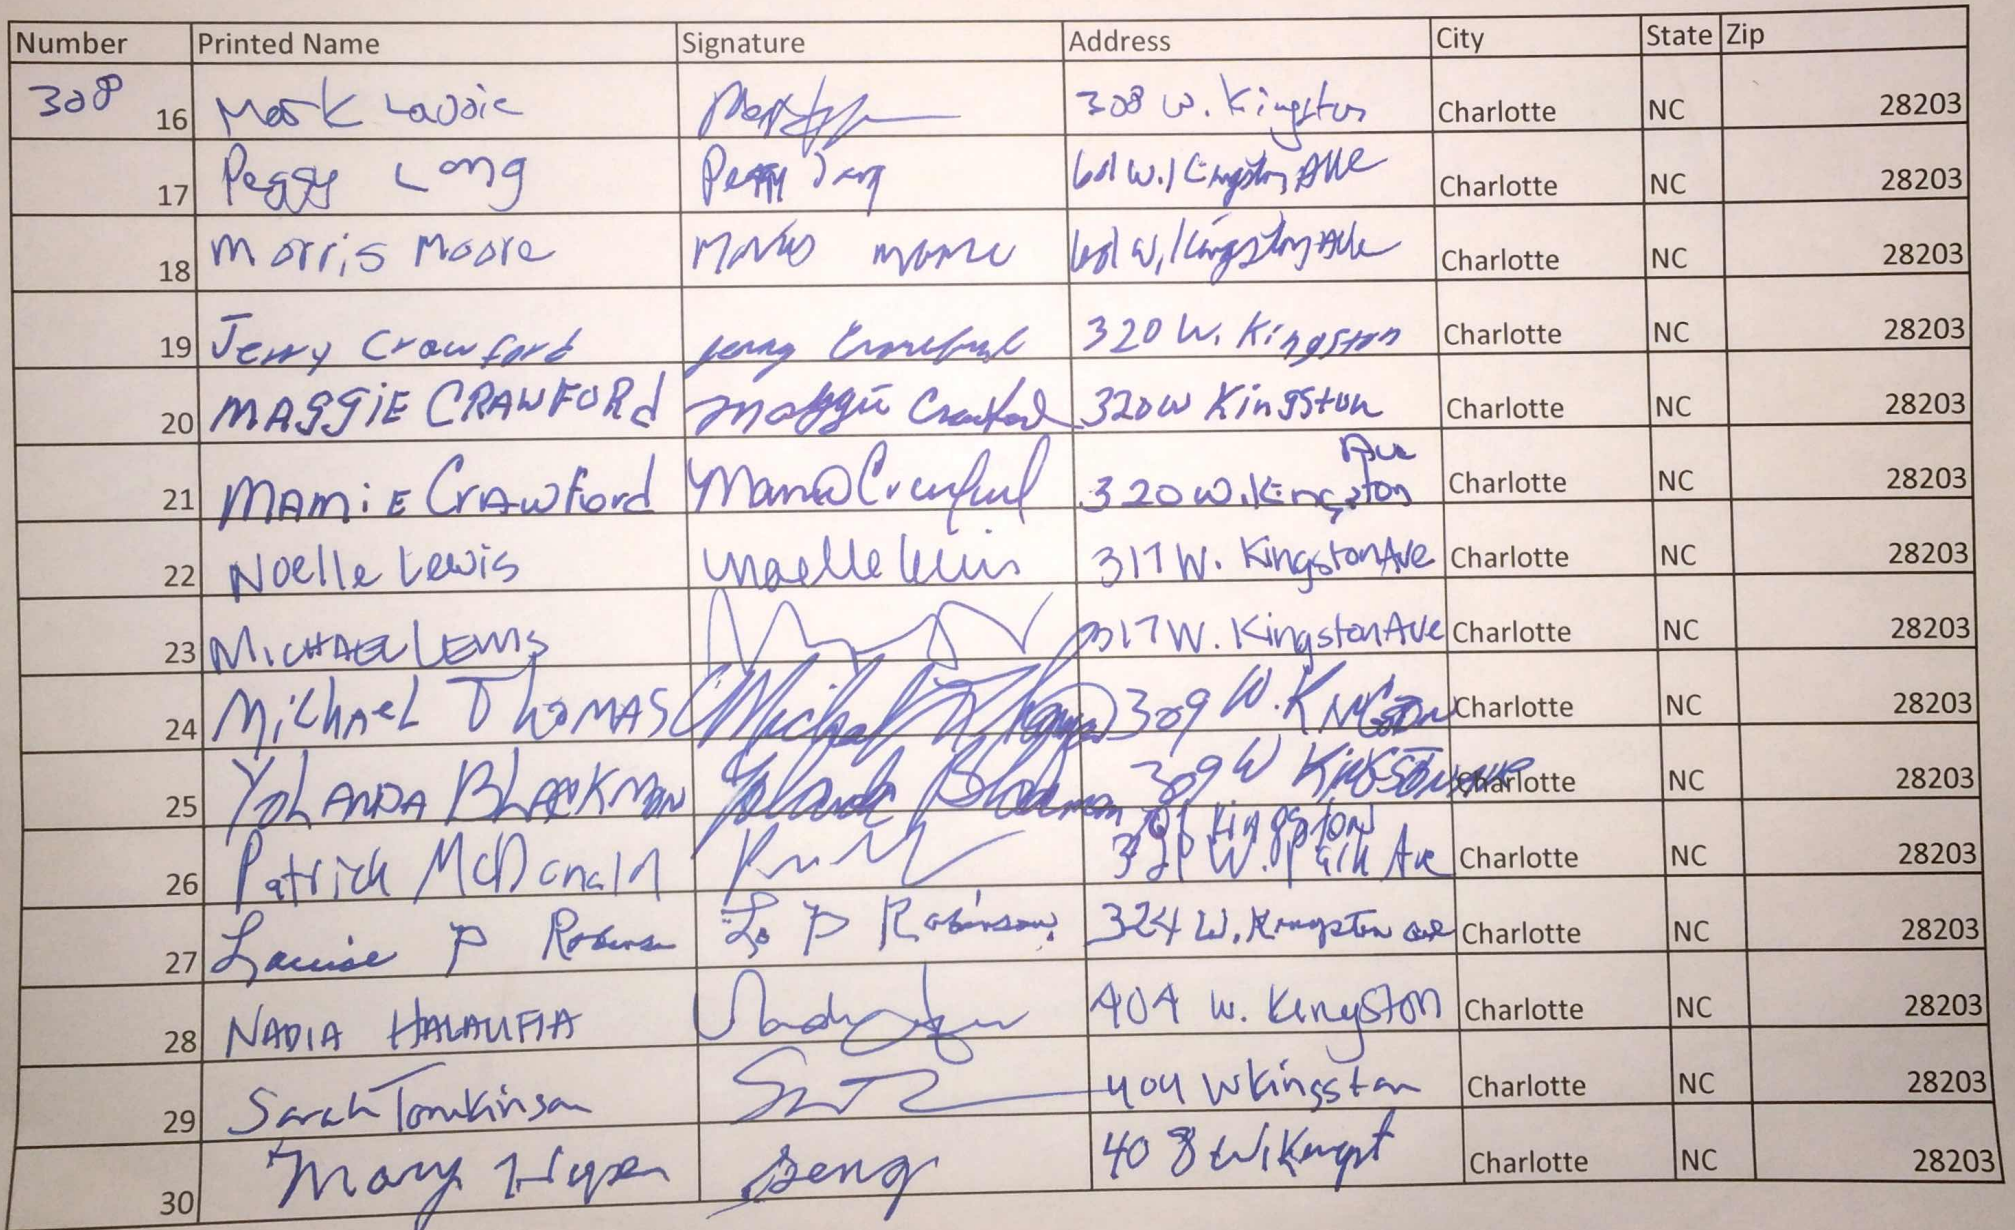 Number Printed Name Signature Address City State Zip
308 16 Mark Lavoie 308 W. Kingston Charlotte NC 28203
17 Peggy Long Peggy Long 601 W. Kingston Ave Charlotte NC 28203
18 Morris Moore Morris Moore 601 W. Kingston Ave Charlotte NC 28203
19 Jerry Crawford Jerry Crawford 320 W. Kingston Charlotte NC 28203
20 MAGGiE CRAWFORd Maggie Crawford 320 W Kingston Charlotte NC 28203
21 MAMiE CrAwford Mamie Crawford 320 W. Kingston Ave Charlotte NC 28203
22 Noelle Lewis Noelle Lewis 317 W. Kingston Ave Charlotte NC 28203
23 MICHAEL LEWIS 317 W. Kingston Ave Charlotte NC 28203
24 MichAeL ThoMAS Michael Thomas 309 W. Kingston Charlotte NC 28203
25 YoLANDA BLACKMON Yolanda Blackmon 309 W Charlotte NC 28203
26 Patrick McDonald Kingston Ave Charlotte NC 28203
27 Louise P Robinson L P Robinson 324 W. Kingston ave Charlotte NC 28203
28 NADIA HALAUFIA 404 W. Kingston Charlotte NC 28203
29 Sarah Tomkinson 404 W Kingston Charlotte NC 28203
30 Mary 408 W. Charlotte NC 28203